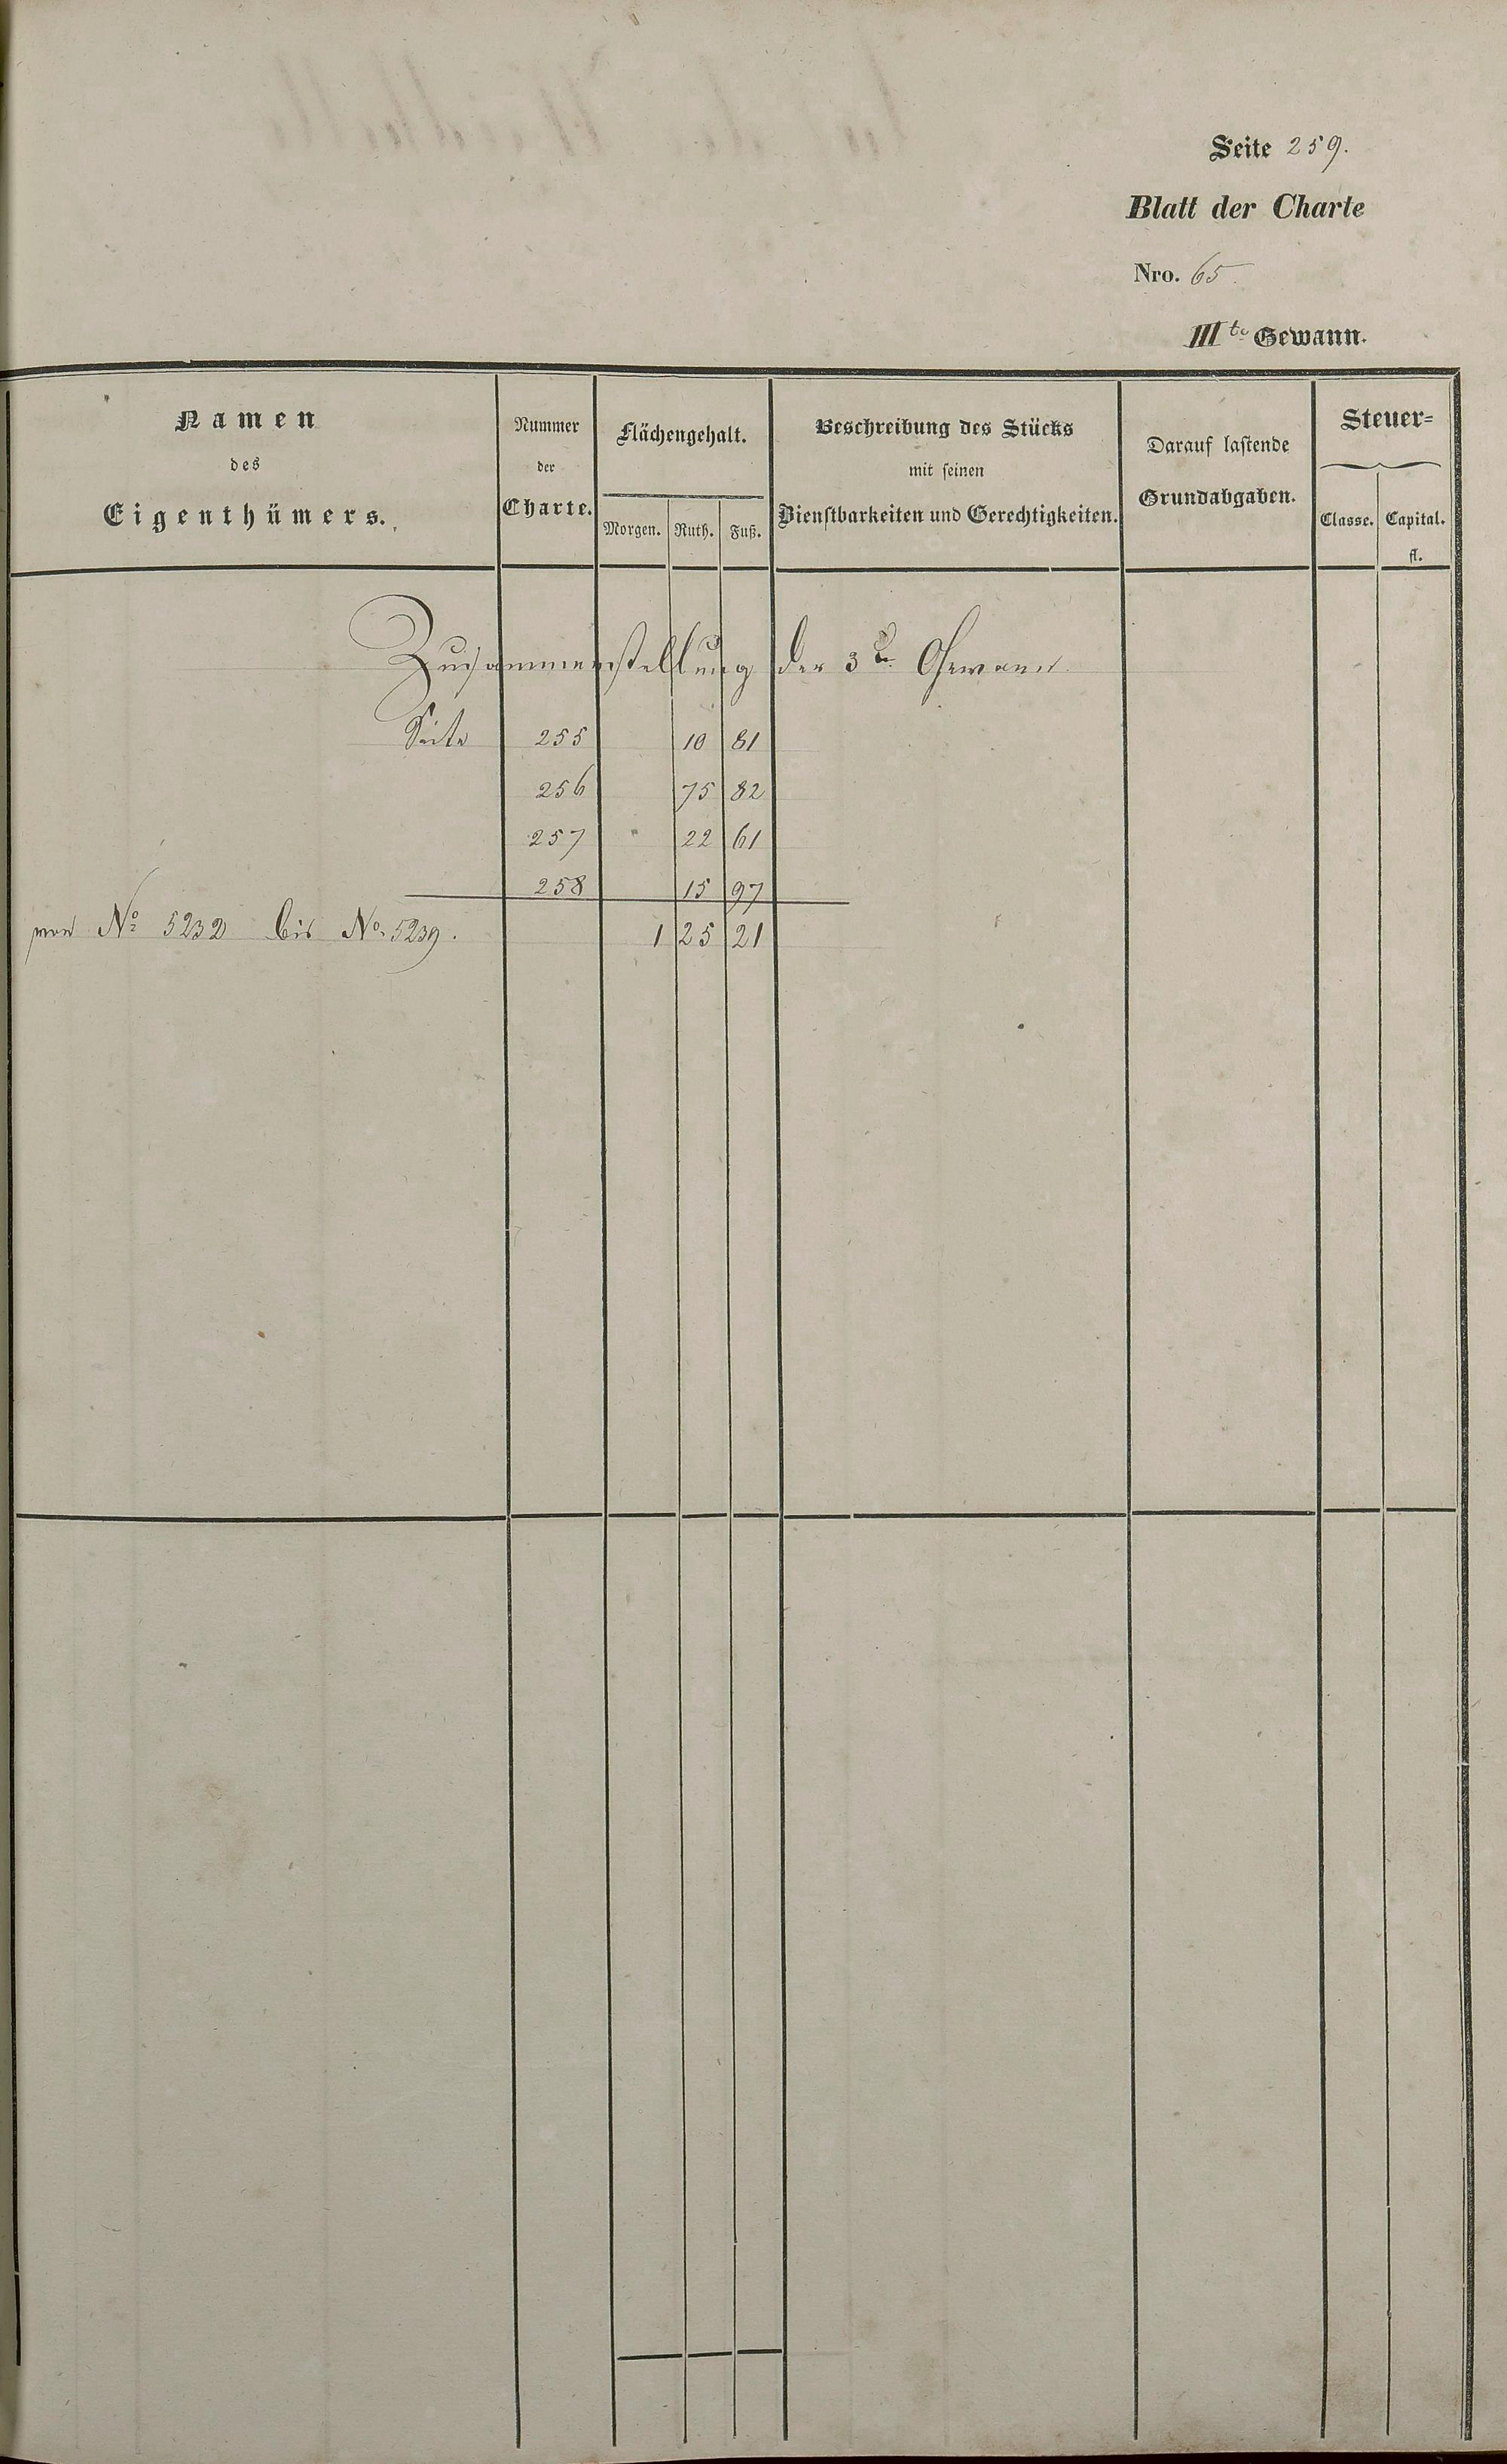 Seite 259.
Blatt der Charte
Nro. 65.
III te Gewann.
Namen
des
Eigenthümers.
Nummer
der
Charte.
Flächengehalt.
Morgen. Ruth. Fuß.
Beschreibung des Stücks
mit seinen
Dienstbarkeiten und Gerechtigkeiten.
Darauf lastende
Grundabgaben.
Steuer=
Classe. Capital.
fl.
Zusammenstellung der 3te Gewann
Seite 255 10 81
256 75 82
257 22 61
258 15 97
von No 5232 bis No. 5239. 1 25 21